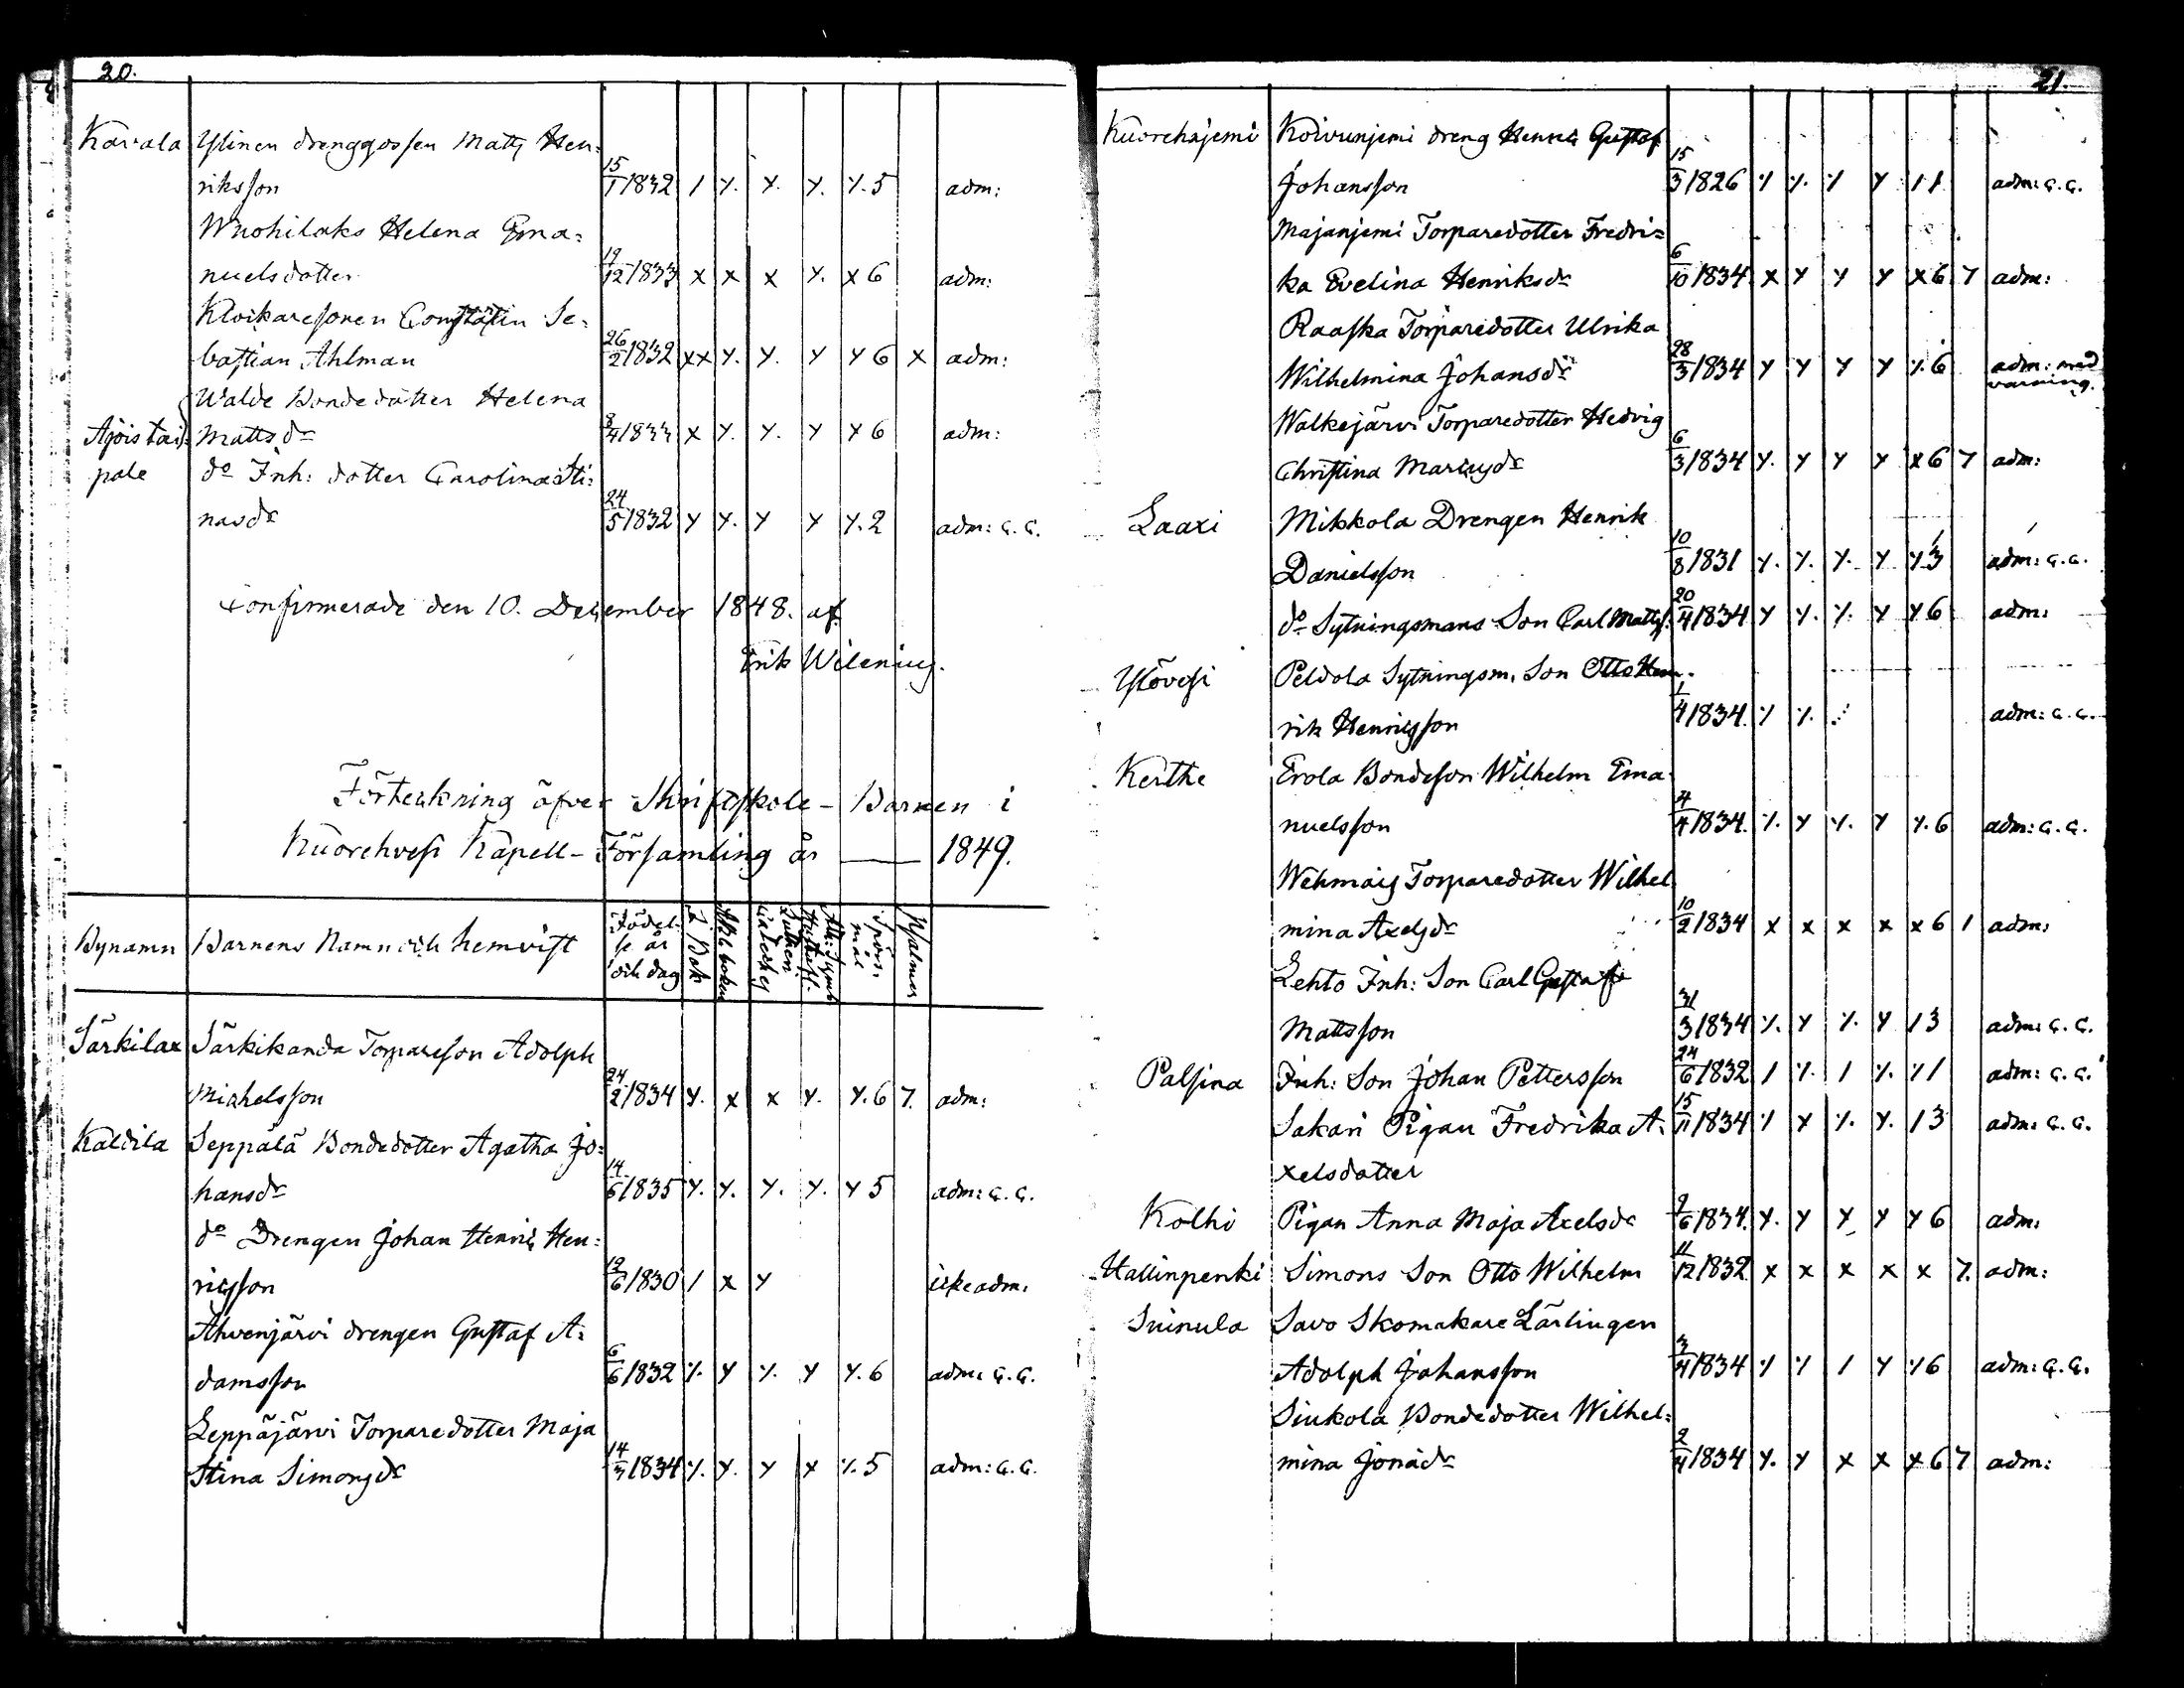 20.
Karvala Ylinen drenggossen Matts Hen=
riksson 15/1 1832 / y. y. y. y. 5 adm:
Wuohilaks Helena Ema=
nuelsdotter 19/12 1833 x x x y. x 6 adm:
Klockaresonen Constantin Se=
bastian Ahlman 26/2 1832 xx y. y. y y 6 x adm:
Walde Bondedotter Helena
Ajois tai= Mattsdr 8/4 1833 x y. y. y y 6 adm:
pale do Inh: dotter Carolina Sti=
nasdr 24/5 1832 y y. y y y. 2 adm: c. c.
Confirmerade den 10. December 1848. af
Erik Wilenius.
Förteckning öfver Skriftskole-Barnen i
Kuorehvesi Kapell-Församling år — 1849.
Bynamn Barnens Namn och hemvist Födel-
se år
och dag I. Bok Abc boken Lutheri
Catechs Ath: Symb
Hustafl. Spörs.
mål Psalmer
Särkilax Särkikanda Torpareson Adolph
Michelsson 24/2 1834 y. x x y. y. 6 7. adm:
Kaldila Seppälä Bondedotter Agatha Jo=
hansdr 14/6 1835 y. y. y. y. y 5 adm: c. c.
do Drengen Johan Henric Hen=
ricsson 12/6 1830 / x y icke adm.
Ahvenjärvi drengen Gustaf A=
damsson 6/6 1832 y. y y. y y. 6 adm: c. c.
Leppäjärvi Torparedotter Maja
Stina Simonsdr 14/3 1834 y. y. y x y. 5 adm: c. c.
21.
Kuorehnjemi Koivunjemi dreng Henric Gustaf
Johansson 15/3 1826 y y. y y 1 1 adm: c. c.
Majanjemi Torparedotter Fredri=
ka Evelina Henriksdr 6/10 1834 x y y y x 6 7 adm:
Raaska Torparedotter Ulrika
Wilhelmina Johansdr 28/3 1834 y y y y y. 6 adm: med
varning.
Walkejärvi Torparedotter Hedvig
Christina Mariasdr 6/3 1834 y. y y y x 6 7 adm:
Laari Mikkola Drengen Henrik
Danielsson 10/8 1831 y. y. y. y y 3 adm: c. c.
do Sytningsmans Son Carl Mattss. 20/4 1834 y y. y. y y 6 adm:
Ylövesi Peldola Sytningsm. Son Otto Hen-
rik Henricsson 1/4 1834. y y. adm: c. c.
Kerthe Erola Bondeson Wilhelm Ema
nuelsson 4/4 1834. y. y y. y y. 6 adm: c. c.
Wehmais Torparedotter Wilhel
mina Axelsdr 10/2 1834 x x x x x 6 1 adm:
Lehto Inh: Son Carl Gustaf
Mattsson 31/3 1834 y. y y. y / 3 adm: c. c.
Palsina Inh: Son Johan Pettersson 24/6 1832 / y. / y. y 1 adm: c. c.
Sakari Pigan Fredrika A= 15/11 1834 y x y. y. / 3 adm: c. c.
xelsdotter
Kolhi Pigan Anna Maja Axelsdr 9/6 1834. y. y y y y 6 adm:
Hallinpenki Simons Son Otto Wilhelm 11/12 1832 x x x x x 7. adm:
Suinula Savo Skomakare Lärlingen
Adolph Johansson 3/4 1834 y y / y y 6 adm: c. c.
Siukola Bondedotter Wilhel=
mina Jonädr 2/4 1834 y. y x x x 6 7 adm: